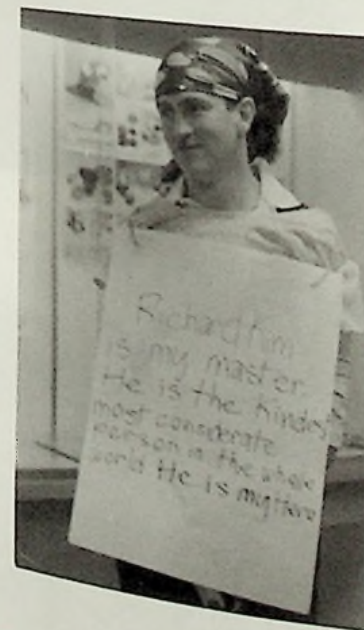 Richard Kim
is my master.
He is the Kindest
most considerate
person in the whole
world He is my Hero